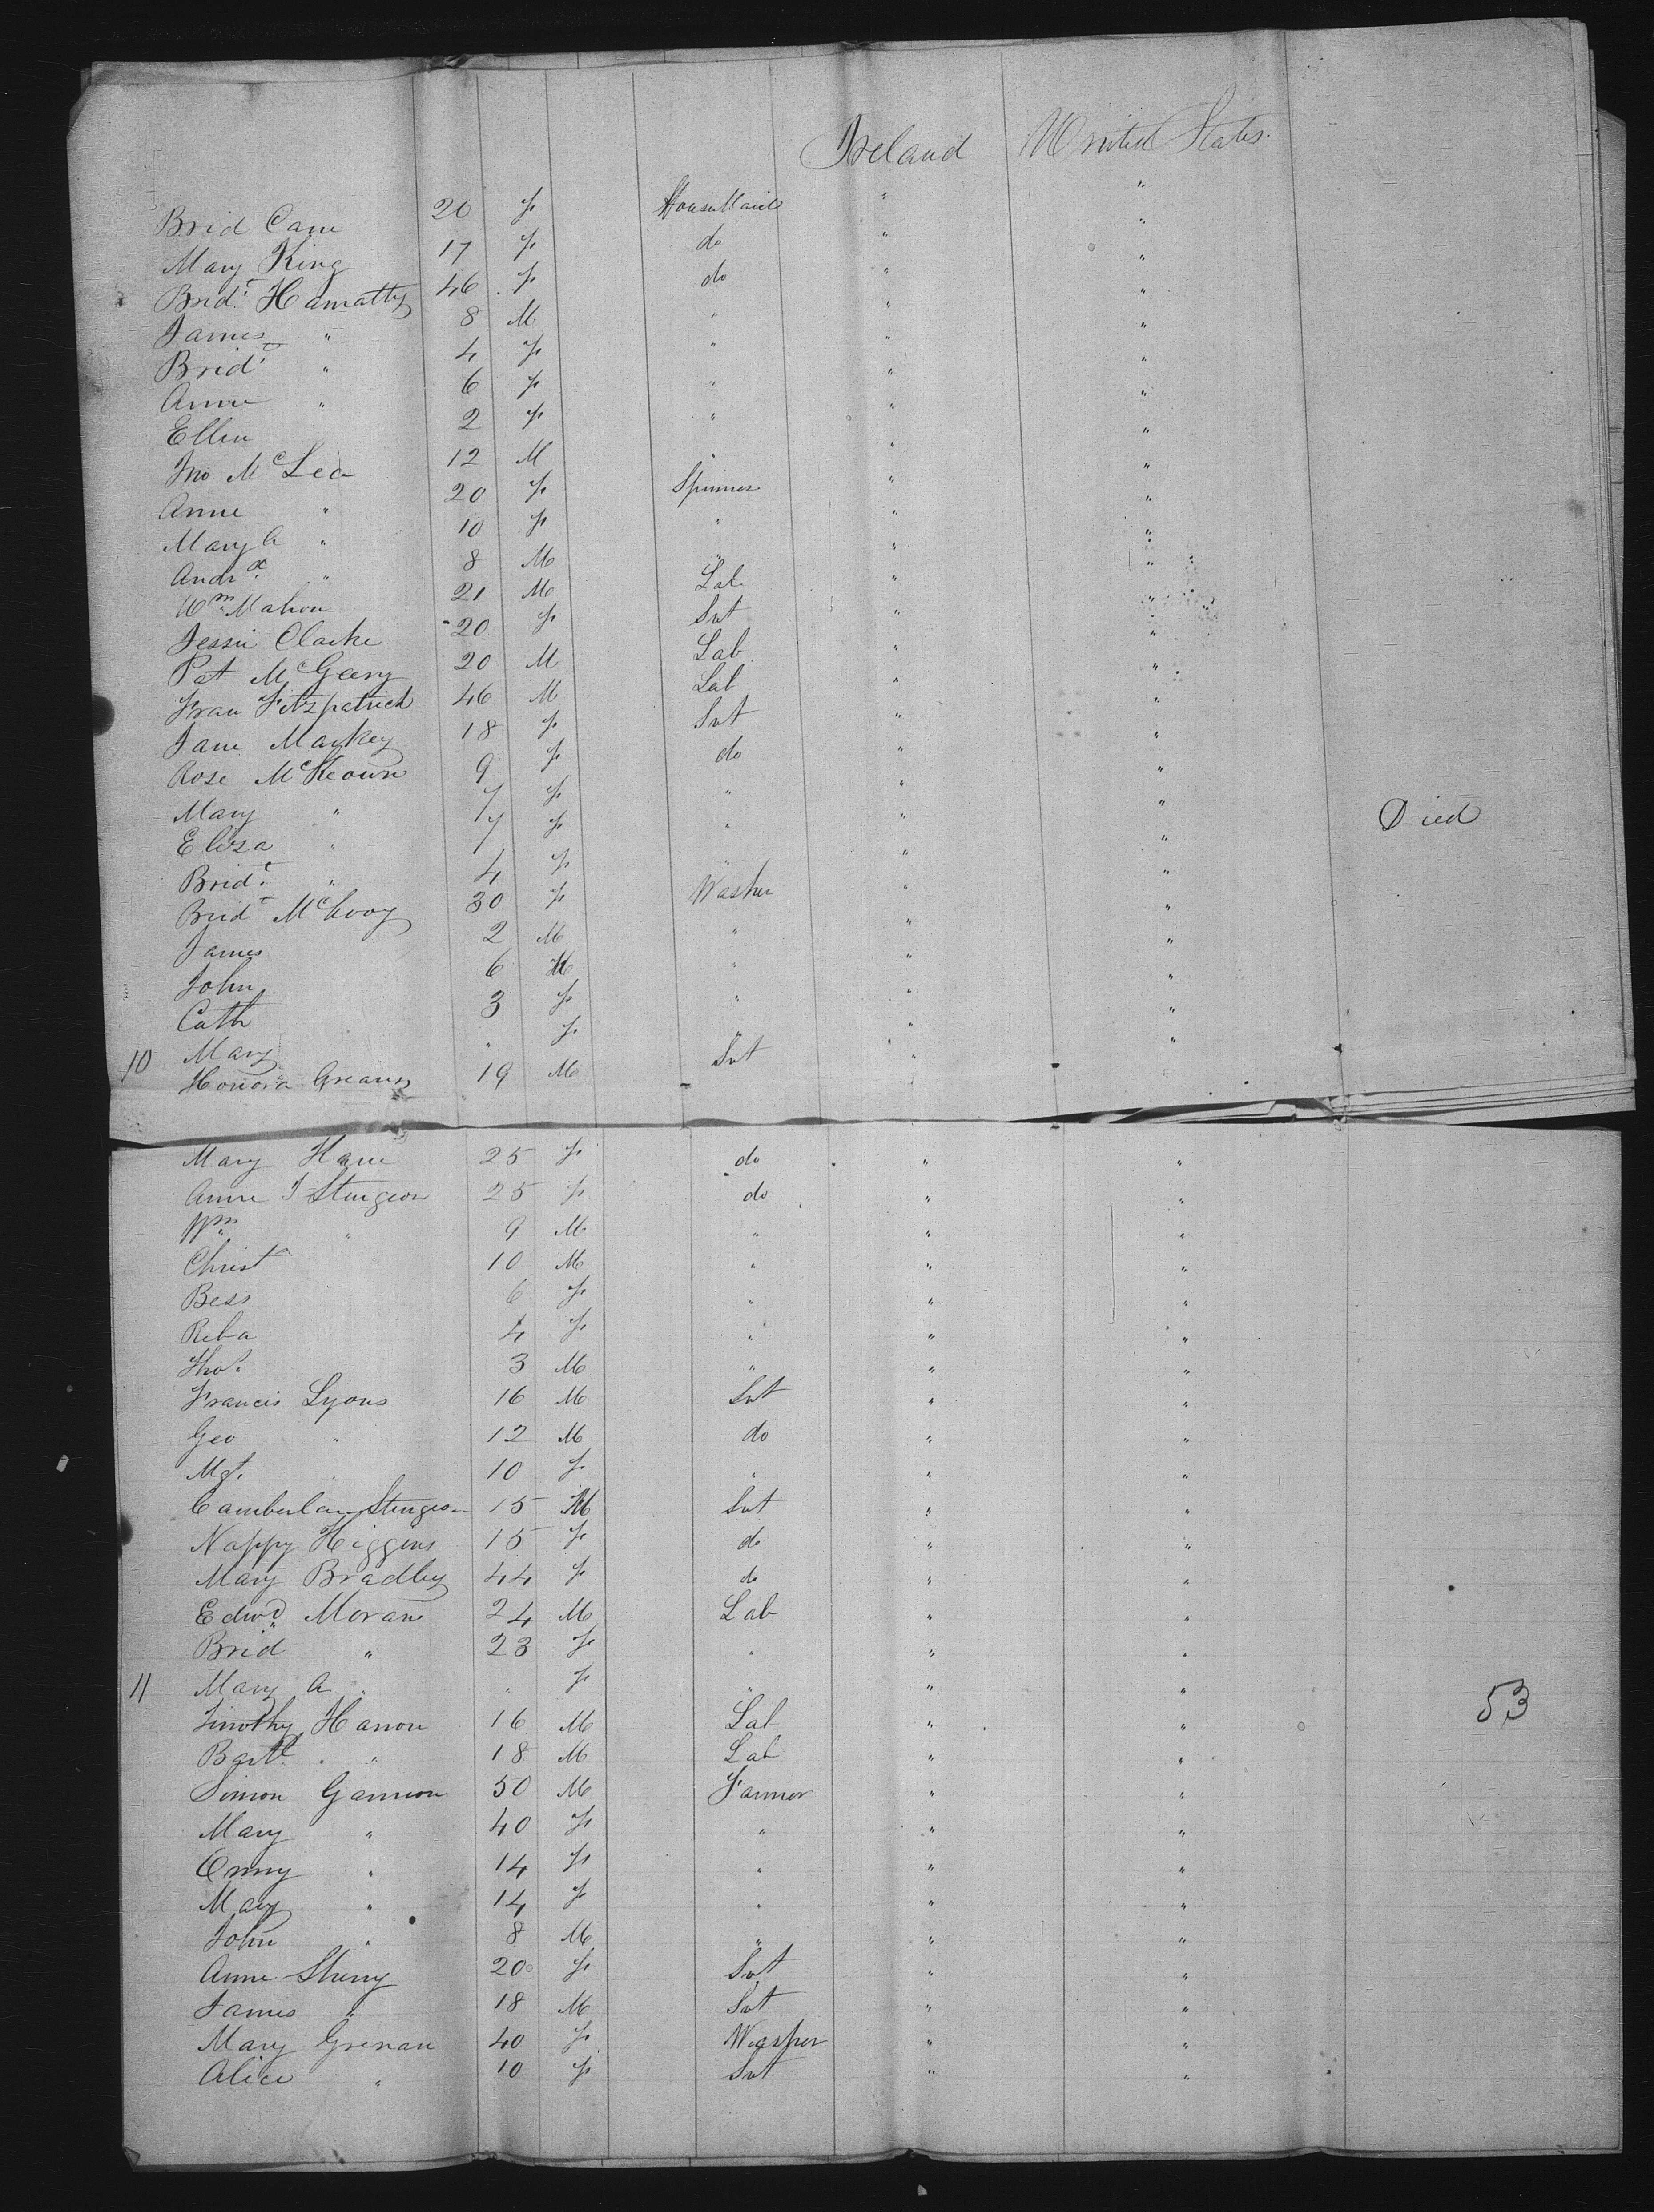 Ireland United States
Brid Cane 20 F House Maid " "
Mary King 17 F do " "
Bridt Hamatty 46 F do " "
James " 8 M " " "
Bridt " 4 F " " "
Anne " 6 F " " "
Ellen 2 F " " "
Jno McLea 12 M " " "
Anne " 20 F Spinner " "
Mary A " 10 F " " "
Andrw " 8 M " " "
Wm Mahon 21 M Lab " "
Jessie Clarke 20 F Svt " "
Pat McGeery 20 M Lab " "
Fran Fitzpatrick 46 M Lab " "
Jane Markey 18 F Svt " "
Rose McKeown 9 F do " "
Mary " 7 F " " "
Eliza " 7 F " " " Died
Bridt " 4 F " " "
Bridt McEvoy 30 F Washer " "
James 2 M " " "
John 6 M " " "
Cath 3 F " " "
10 Mary " F " " "
Honora Greany 19 M Svt " "
Mary Hane 25 F do " "
Anne J Sturgeon 25 F do " "
Wm " 9 M " " "
Christ 10 M " " "
Bess 6 F " " "
Reba 4 F " " "
Thos 3 M " " "
Francis Lyons 16 M Svt " "
Geo " 12 M do " "
Mgt. 10 F " " "
Camberlan Sturgeon 15 M Svt " "
Nappy Higgins 15 F do " "
Mary Bradley 44 F do " "
Edwd Moran 24 M Lab " "
Brid " 23 F " " "
11 Mary A " " F " " " 53
Timothy Hanon 16 M Lab " "
Bartl " 18 M Lab " "
Simon Gannon 50 M Farmer " "
Mary " 40 F " " "
Onny " 14 F " " "
Mary " 14 F " " "
John " 8 M " " "
Anne Sherry 20 F Svt " "
James " 18 M Svt " "
Mary Grenan 40 F Washer " "
Alice " 10 F Svt " "